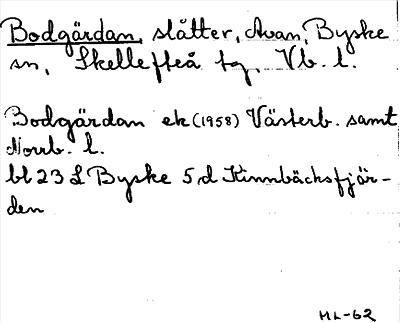 Bodgärdan, slåtter, Avan, Byske
sn, Skellefteå tg, Vb. l.
Bodgärdan ek (1958) Västerb. samt
Norrb. l.
bl 23 L Byske 5 d Kinnbäcksfjär-
den
ML-62